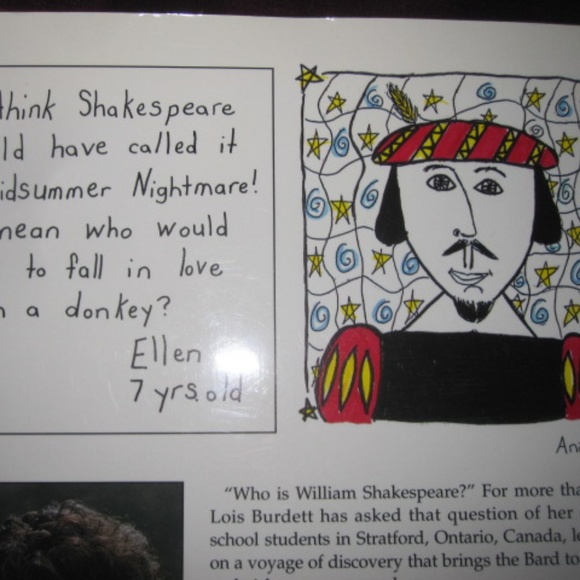 think Shakespeare
ld have called it
idsummer Nightmare!
mean who would
to fall in love
a donkey?
Ellen
7 yrs. old
An
"Who is William Shakespeare?" For more tha
Lois Burdett has asked that question of her
school students in Stratford, Ontario, Canada, le
on a voyage of discovery that brings the Bard to